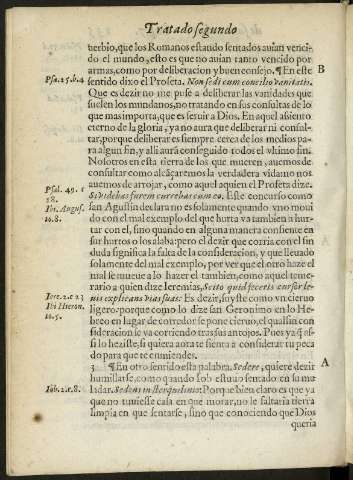 Tratado segundo
uerbio, que los Romanos estando sentados auian venci-
do el mundo, esto es que no auian tanto vencido por
armas, como por deliberacion y buen consejo. ¶ En este B
Psa. 25. b. 4 sentido dixo el Profeta. Non sedi cum concilio vanitatis.
Que es dezir no me puse a deliberar las vanidades que
suelen los mundanos, no tratando en sus consultas de lo
que mas importa, que es seruir a Dios. En aquel assiento
eterno de la gloria, ya no aura que deliberar ni consul-
tar, porque deliberar es siempre cerca de los medios pa-
ra algun fin, y alli aura conseguido todos el vltimo fin.
Nosotros en esta tierra de los que mueren, auemos de
consultar como alcãçaremos la verdadera vida: mo nos
auemos de arrojar, como aquel aquien el Profeta dize.
Psal. 49. c Si videbas furem currebas cum eo. Este concurso como
18.
Toi. Augus. san Agustin declara no es solamente quando vno moui-
to. 8. do con el mal exemplo del que hurta va tambien a hur-
tar con el, sino quando en alguna manera consiente en
sus hurtos o los alaba: pero el dezir que corria con el sin
duda significa la falta de la consideracion, y que lleuado
solamente del mal exemplo, por ver que el otro haze el
mal se mueue a lo hazer el tambien, como aquel teme-
rario a quien dize Ieremias, Scito quid feceris cursor le-
Iere. 2. e. 23 nis explicans vias suas: Es dezir, fuyste como vn cieruo
Toi Hieron.
to. 5. ligero: porque como lo dize san Geronimo en lo He-
breo en lugar de corredor se pone cieruo, el qual sin con-
sideracion se va corriendo tras sus antojos. Pues ya q̃ as-
si lo heziste, si quiera aora te sienta a considerar tu peca-
do para que te enmiendes.
3. ¶ En otro sentido esta palabra. Sedere, quiere dezir A
humillarse, como quando Iob estuuo sentado en su mu-
Iob. 2. c. 8. ladar. Sedens in sterquilinio: Porque bien claro es que ya
que no tuuiesse casa en que morar, no le faltaria tierra
limpia en que sentarse, sino que conociendo que Dios
queria